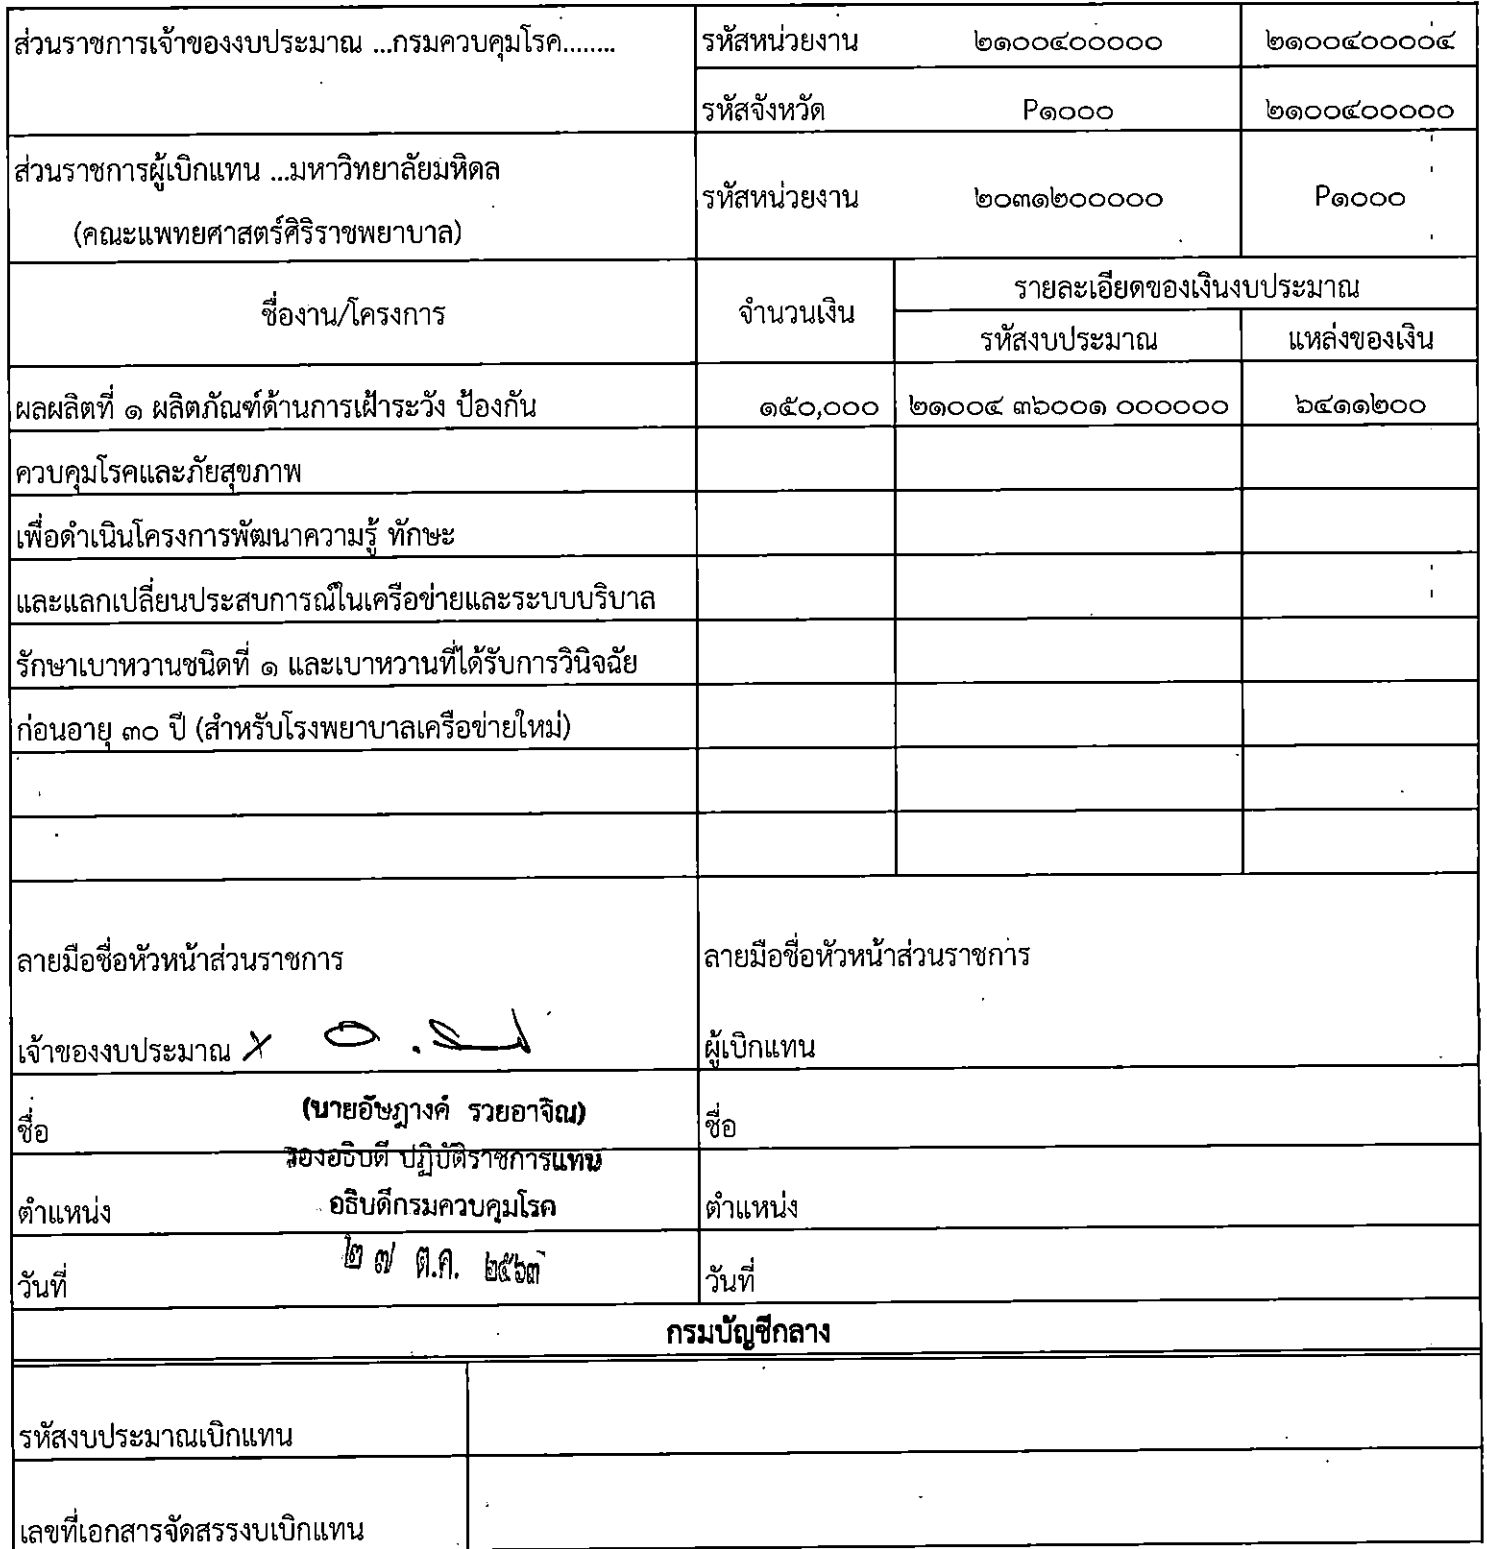 ส่วนราชการเจ้าของงบประมาณ ...กรมควบคุมโรค........ รหัสหน่วยงาน ๒๑๐๐๔๐๐๐๐๐ ๒๑๐๐๔๐๐๐๐๔
รหัสจังหวัด P๑๐๐๐ ๒๑๐๐๔๐๐๐๐๐
ส่วนราชการผู้เบิกแทน ...มหาวิทยาลัยมหิดล
(คณะแพทยศาสตร์ศิริราชพยาบาล)
รหัสหน่วยงาน ๒๐๓๑๒๐๐๐๐๐ P๑๐๐๐
ชื่องาน/โครงการ จำนวนเงิน รายละเอียดของเงินงบประมาณ
รหัสงบประมาณ แหล่งของเงิน
ผลผลิตที่ ๑ ผลิตภัณฑ์ด้านการเฝ้าระวัง ป้องกัน ๑๕๐,๐๐๐ ๒๑๐๐๔ ๓๖๐๐๑ ๐๐๐๐๐๐ ๖๔๑๑๒๐๐
ควบคุมโรคและภัยสุขภาพ
เพื่อดำเนินโครงการพัฒนาความรู้ ทักษะ
และแลกเปลี่ยนประสบการณ์ในเครือข่ายและระบบบริบาล
รักษาเบาหวานชนิดที่ ๑ และเบาหวานที่ได้รับการวินิจฉัย
ก่อนอายุ ๓๐ ปี (สำหรับโรงพยาบาลเครือข่ายใหม่)
ลายมือชื่อหัวหน้าส่วนราชการ ลายมือชื่อหัวหน้าส่วนราชการ
เจ้าของงบประมาณ ผู้เบิกแทน
ชื่อ (นายอัษฎางค์ รวยอาจิณ) ชื่อ
รองอธิบดี ปฏิบัติราชการแทน
ตำแหน่ง อธิบดีกรมควบคุมโรค ตำแหน่ง
วันที่ ๒ ๗ ต.ค. ๒๕๖๓ วันที่
กรมบัญชีกลาง
รหัสงบประมาณเบิกแทน
เลขที่เอกสารจัดสรรงบเบิกแทน